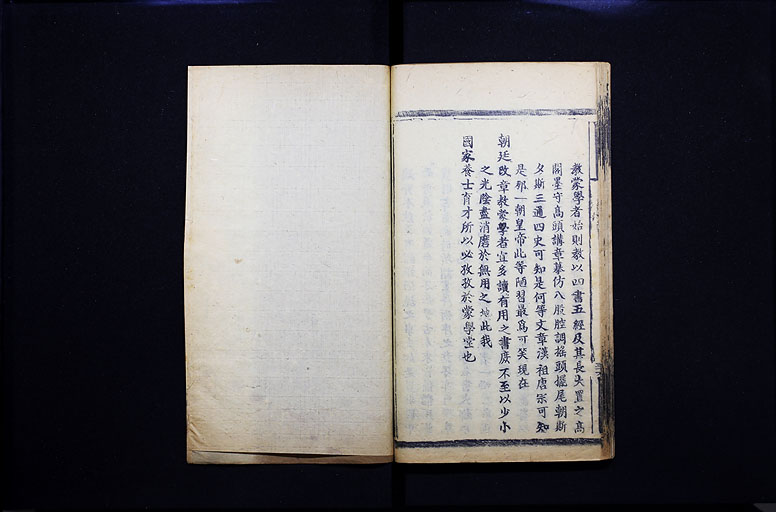 教蒙學者始則教以四書五經及其長大置之高
閣墨守高頭講章摹仿八股腔調搖頭擺尾朝斯
夕斯三通四史可知是何等文章漢祖唐宗可知
是那一朝皇帝此等陋習最爲可笑現在
朝廷改章教蒙學者宜多讀有用之書庶不至以少小
之光陰盡消磨於無用之地此我
國家養士育才所以必孜孜於蒙學堂也